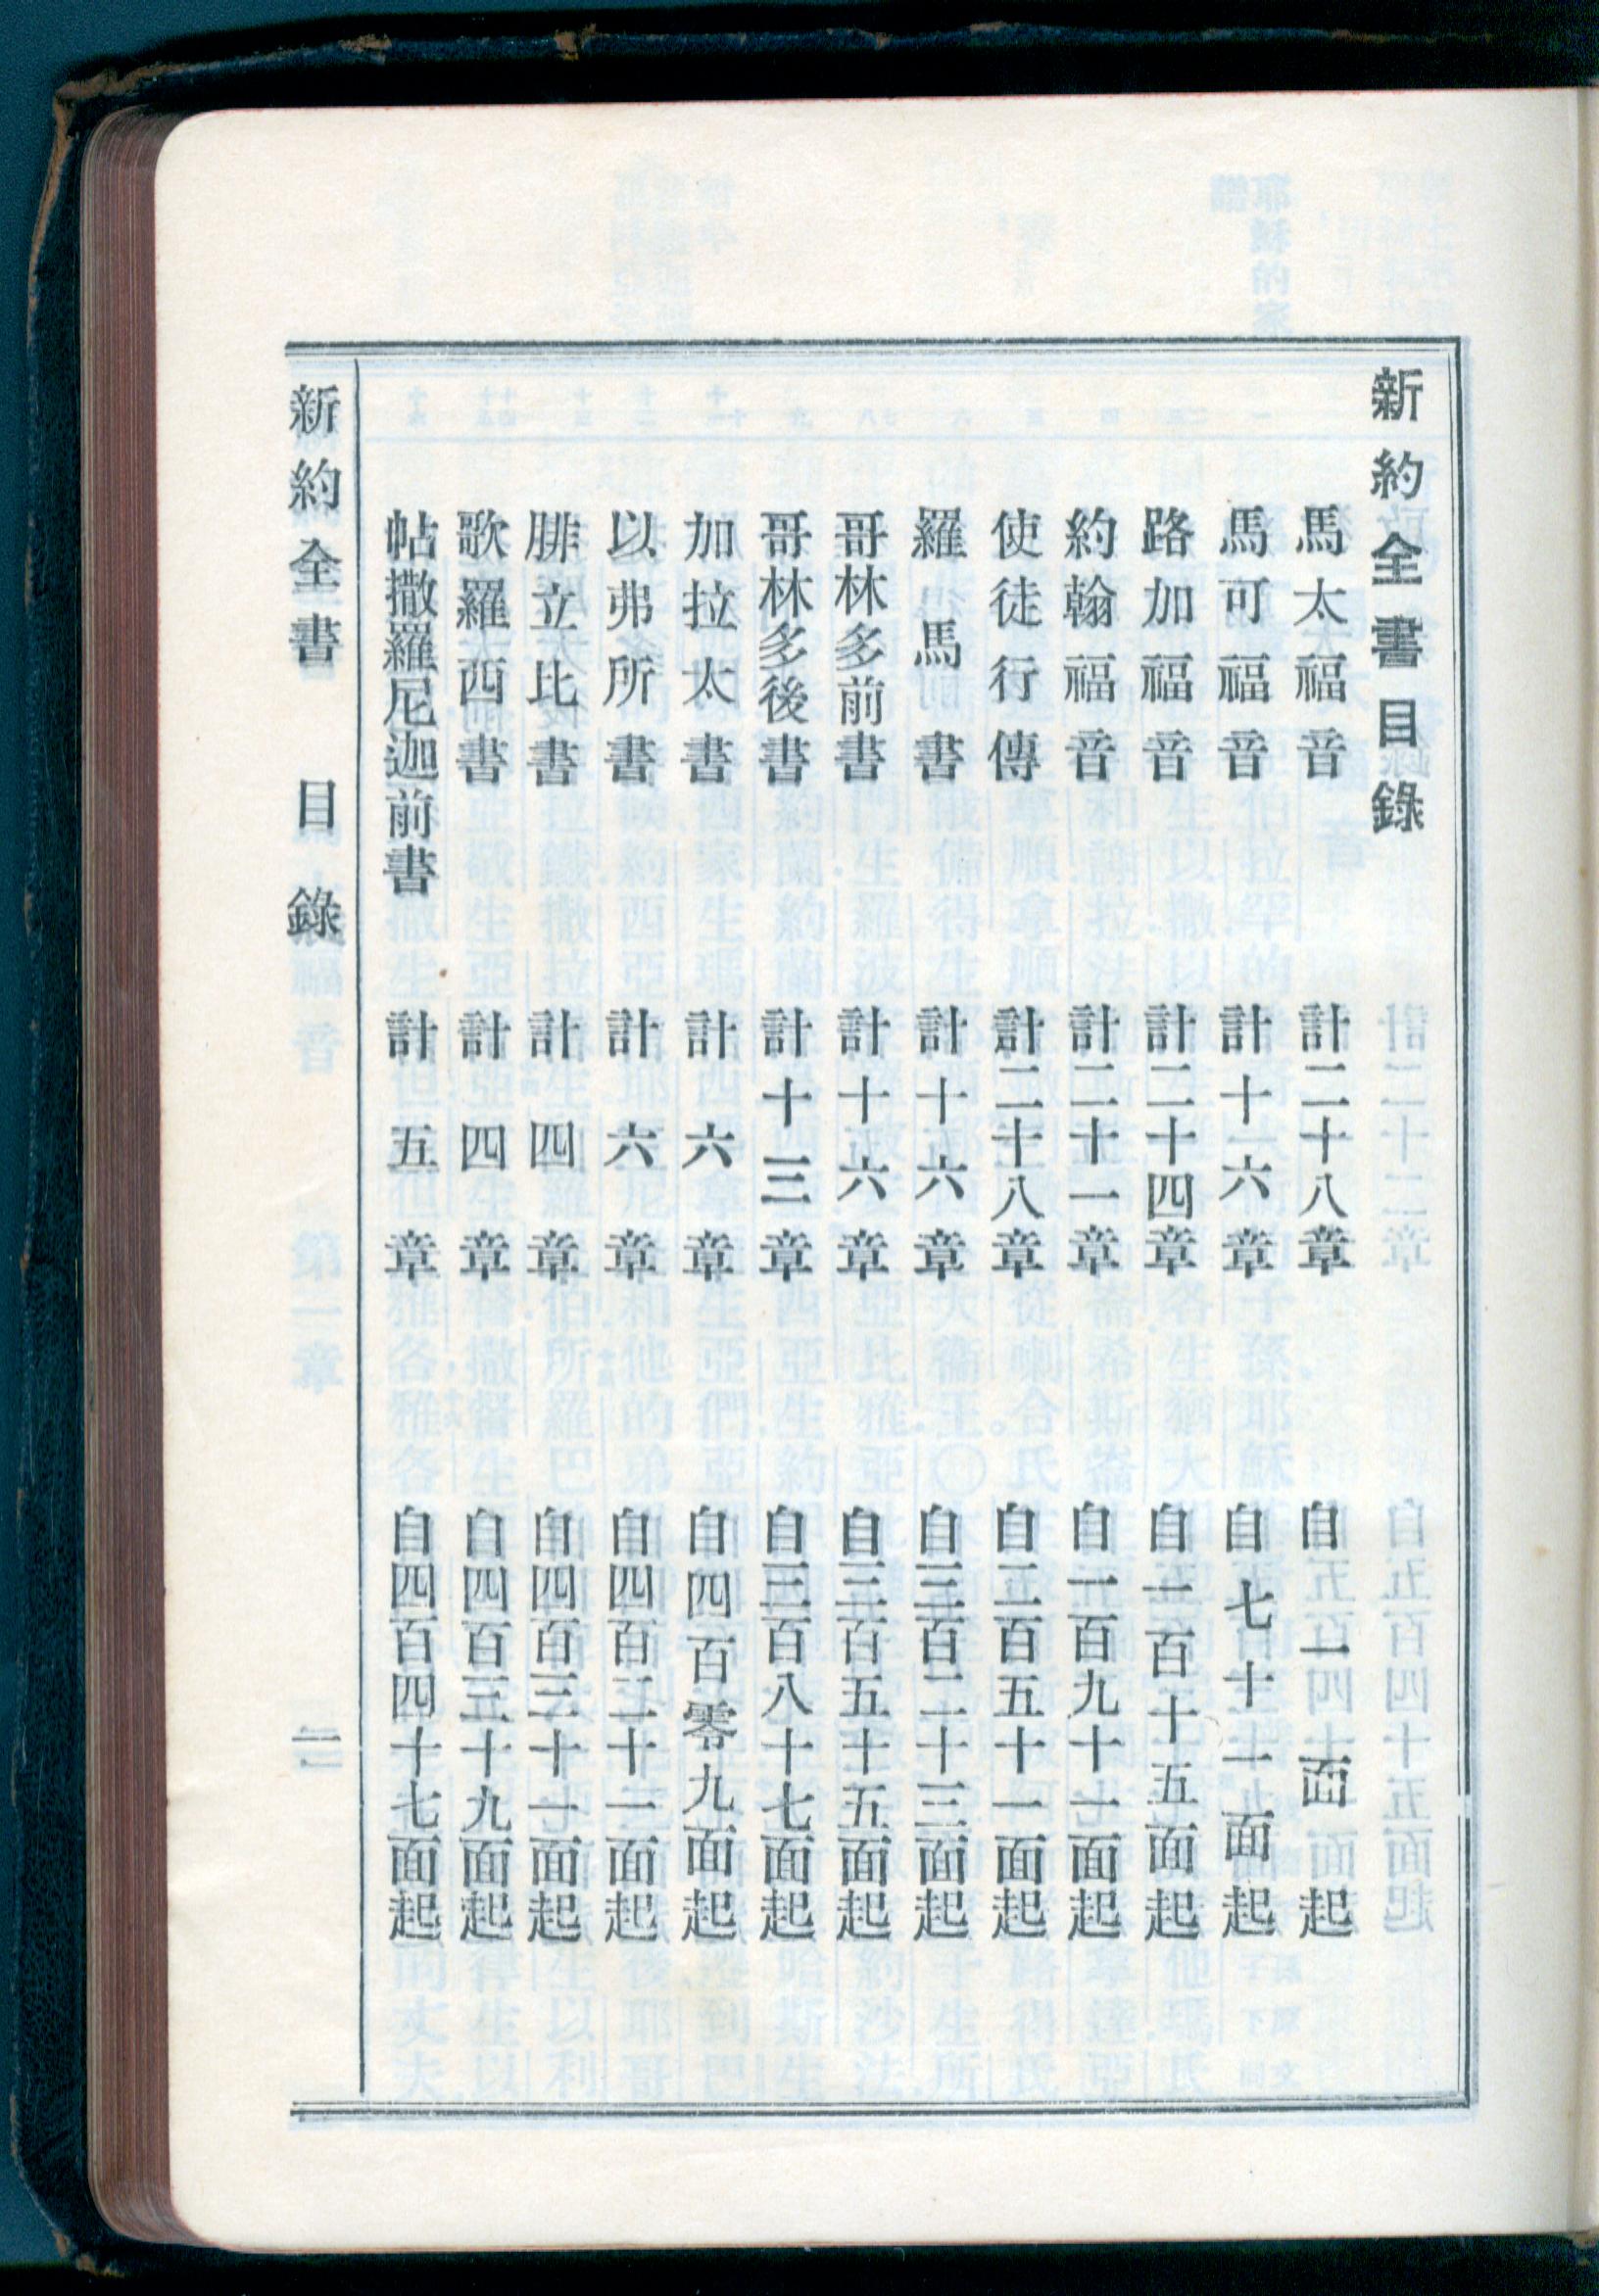 新約全書目錄
馬太福音 計二十八章 自一面起
馬可福音 計十六章 自七十一面起
路加福音 計二十四章 自一百十五面起
約翰福音 計二十一章 自一百九十一面起
使徒行傳 計二十八章 自二百五十一面起
羅馬書 計十六章 自三百二十三面起
哥林多前書 計十六章 自三百五十五面起
哥林多後書 計十三章 自三百八十七面起
加拉太書 計六章 自四百零九面起
以弗所書 計六章 自四百二十一面起
腓立比書 計四章 自四百三十一面起
歌羅西書 計四章 自四百三十九面起
帖撒羅尼迦前書 計五章 自四百四十七面起
新約全書 目錄